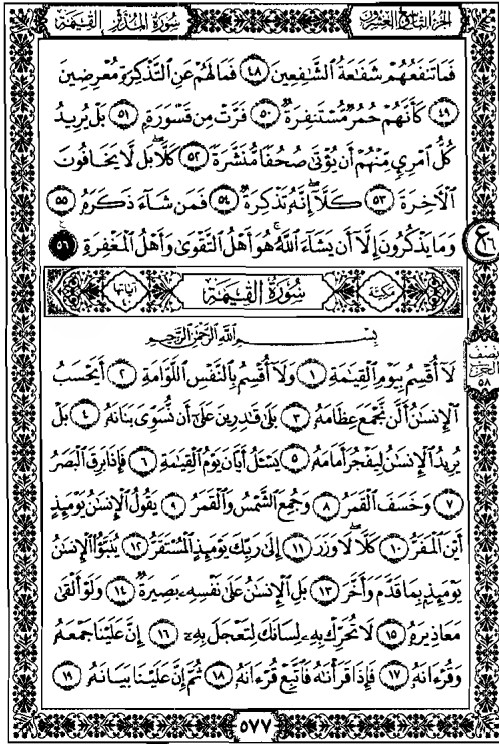 الجزء التاسع والعشرون سورة المدثر القيمة
فَمَا تَنفَعُهُمْ شَفَٰعَةُ ٱلشَّٰفِعِينَ ٤٨ فَمَا لَهُمْ عَنِ ٱلتَّذْكِرَةِ مُعْرِضِينَ
٤٩ كَأَنَّهُمْ حُمُرٌ مُّسْتَنفِرَةٌ ٥٠ فَرَّتْ مِن قَسْوَرَةٍ ٥١ بَلْ يُرِيدُ
كُلُّ ٱمْرِئٍ مِّنْهُمْ أَن يُؤْتَىٰ صُحُفًا مُّنَشَّرَةً ٥٢ كَلَّا ۖ بَل لَّا يَخَافُونَ
ٱلْءَاخِرَةَ ٥٣ كَلَّآ إِنَّهُۥ تَذْكِرَةٌ ٥٤ فَمَن شَآءَ ذَكَرَهُۥ ٥٥
وَمَا يَذْكُرُونَ إِلَّآ أَن يَشَآءَ ٱللَّهُ ۚ هُوَ أَهْلُ ٱلتَّقْوَىٰ وَأَهْلُ ٱلْمَغْفِرَةِ ٥٦
ع
مكية سورة القيمة آياتها
بِسْمِ ٱللَّهِ ٱلرَّحْمَٰنِ ٱلرَّحِيمِ
نصف الحزب ٥٨
لَآ أُقْسِمُ بِيَوْمِ ٱلْقِيَٰمَةِ ١ وَلَآ أُقْسِمُ بِٱلنَّفْسِ ٱللَّوَّامَةِ ٢ أَيَحْسَبُ
ٱلْإِنسَٰنُ أَلَّن نَّجْمَعَ عِظَامَهُۥ ٣ بَلَىٰ قَٰدِرِينَ عَلَىٰٓ أَن نُّسَوِّىَ بَنَانَهُۥ ٤ بَلْ
يُرِيدُ ٱلْإِنسَٰنُ لِيَفْجُرَ أَمَامَهُۥ ٥ يَسْـَٔلُ أَيَّانَ يَوْمُ ٱلْقِيَٰمَةِ ٦ فَإِذَا بَرِقَ ٱلْبَصَرُ
٧ وَخَسَفَ ٱلْقَمَرُ ٨ وَجُمِعَ ٱلشَّمْسُ وَٱلْقَمَرُ ٩ يَقُولُ ٱلْإِنسَٰنُ يَوْمَئِذٍ
أَيْنَ ٱلْمَفَرُّ ١٠ كَلَّا لَا وَزَرَ ١١ إِلَىٰ رَبِّكَ يَوْمَئِذٍ ٱلْمُسْتَقَرُّ ١٢ يُنَبَّؤُا۟ ٱلْإِنسَٰنُ
يَوْمَئِذٍۭ بِمَا قَدَّمَ وَأَخَّرَ ١٣ بَلِ ٱلْإِنسَٰنُ عَلَىٰ نَفْسِهِۦ بَصِيرَةٌ ١٤ وَلَوْ أَلْقَىٰ
مَعَاذِيرَهُۥ ١٥ لَا تُحَرِّكْ بِهِۦ لِسَانَكَ لِتَعْجَلَ بِهِۦٓ ١٦ إِنَّ عَلَيْنَا جَمْعَهُۥ
وَقُرْءَانَهُۥ ١٧ فَإِذَا قَرَأْنَٰهُ فَٱتَّبِعْ قُرْءَانَهُۥ ١٨ ثُمَّ إِنَّ عَلَيْنَا بَيَانَهُۥ ١٩
٥٧٧